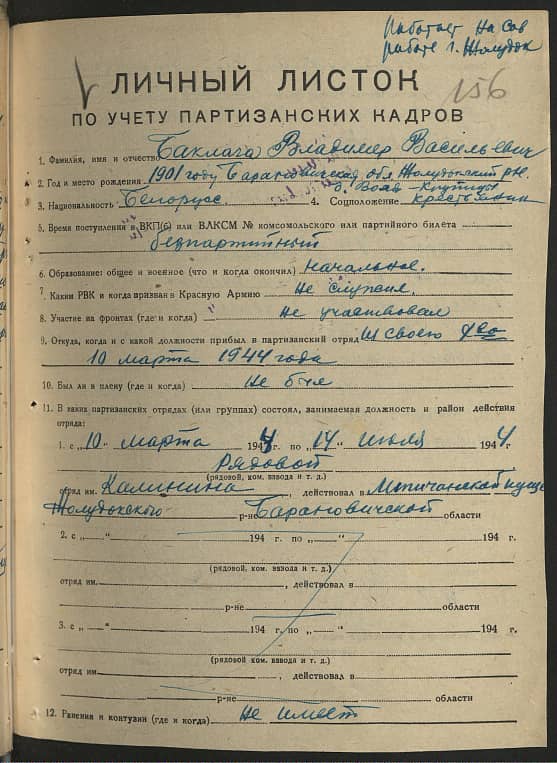 Работает на сов
работе г. Жолудок
156
ЛИЧНЫЙ ЛИСТОК
ПО УЧЕТУ ПАРТИЗАНСКИХ КАДРОВ
1. Фамилия, имя и отчество Баклага Владимир Васильевич
2. Год и место рождения 1901 году Барановичская обл Жолудокский р-н.
3. Национальность Белорус. 4. Соцположение крестьянин
5. Время поступления в ВКП(б) или ВЛКСМ № комсомольского или партийного билета
безпартийный
6. Образование: общее и военное (что и когда окончил) начальное.
7. Каким РВК и когда призван в Красную Армию не служил.
8. Участие на фронтах (где и когда) " не участвовал
9. Откуда, когда и с какой должности прибыл в партизанский отряд из своего
10 марта 1944 года
10. Был ли в плену (где и когда) не был
11. В каких партизанских отрядах (или группах) состоял, занимаемая должность и район действия
отряда:
1. с „10" марта 1944 г. по „14" июля 1944 г.
Рядовой
(рядовой, ком. взвода и т. д.)
отряд им. Калинина, действовал в пуще
Жолудокского р-не Барановичской области
2. с „ " 194 г. по „ " 194 г.
(рядовой, ком. взвода и т. д.)
отряд им. , действовал в
р-не области
3. с „ " 194 г. по „ " 194 г.
(рядовой ком. взвода и т. д.)
отряд им. , действовал в
р-не области
12. Ранения и контузии (где и когда) не имеет